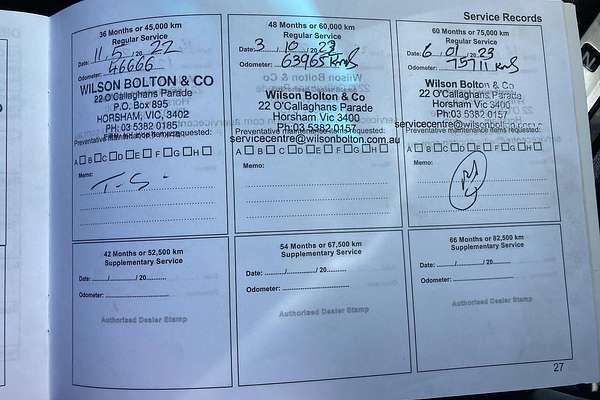 Service Records
36 Months or 45,000 km
Regular Service
Date: 11/5/2022
Odometer: 46666
WILSON BOLTON & CO
22 O'Callaghans Parade
P.O. Box 895
HORSHAM, VIC, 3402
PH: 03 5382 0185
Preventative maintenance items requested:
A B C D E F G H
Memo:
T-S-
48 Months or 60,000 km
Regular Service
Date: 3/10/2023
Odometer: 63965 Kms
Wilson Bolton & Co
22 O'Callaghans Parade
Horsham Vic 3400
Ph:03 5382 0157
Preventative maintenance items requested:
servicecentre@wilsonbolton.com.au
A B C D E F G H
Memo:
60 Months or 75,000 km
Regular Service
Date: 6/01/2023
Odometer: 75711 Kms
Wilson Bolton & Co
22 O'Callaghans Parade
Horsham Vic 3400
Ph:03 5382 0157
servicecentre@wilsonbolton
Preventative maintenance items requested:
A B C D E F G H
Memo:
42 Months or 52,500 km
Supplementary Service
Date: ......../......../20........
Odometer: ........................
Authorized Dealer Stamp
54 Months or 67,500 km
Supplementary Service
Date: ......../......../20........
Odometer: ........................
Authorized Dealer Stamp
66 Months or 82,500 km
Supplementary Service
Date: ......../......../20........
Odometer: ........................
Authorized Dealer Stamp
27